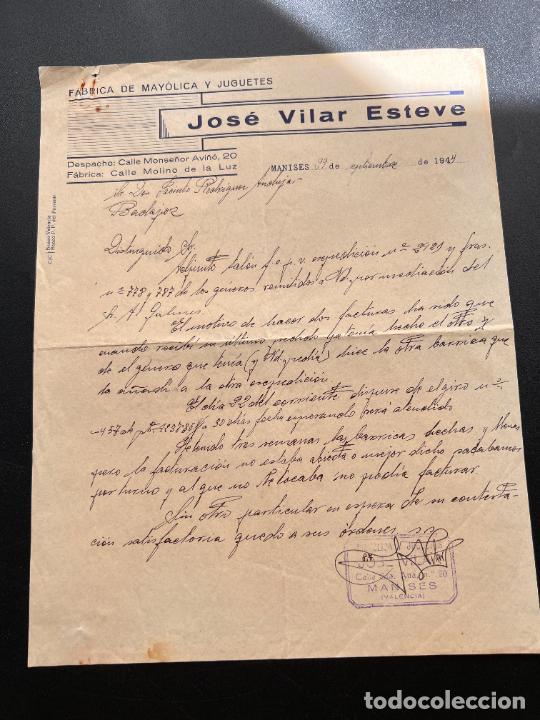 FÁBRICA DE MAYÓLICA Y JUGUETES
José Vilar Esteve
Despacho: Calle Monseñor Aviñó, 20
Fábrica: Calle Molino de la Luz
MANISES 29 de septiembre de 1944
Sr. Dn. Jacinto Rodriguez
Badajoz
Distinguido Sr.
Adjunto talón f.c. p.v. expedición nº 2921 y fras.
nº 778 y 787 de los generos remitidos a Vd. por mediacion del
Sr. A.
El motivo de hacer dos facturas ha sido que
cuando recibi su ultimo pedido ya tenia hecho el otro y
de el género que tenia (y Vd. pedia) hice la otra barrica que
da a la otra expedición
El dia 22 del corriente dispuse de el giro nº
457 de pts. a 30 dias fecha esperando sera atendido
tres semanas las barricas hechas y
pero la facturación no estaba abierta o mejor dicho
por turno y al que no le tocaba no podia facturar
Sin otro particular en espera de su contesta-
ción satisfactoria quedo a sus órdenes s.s.
20
MANISES
(VALENCIA)
todocoleccion